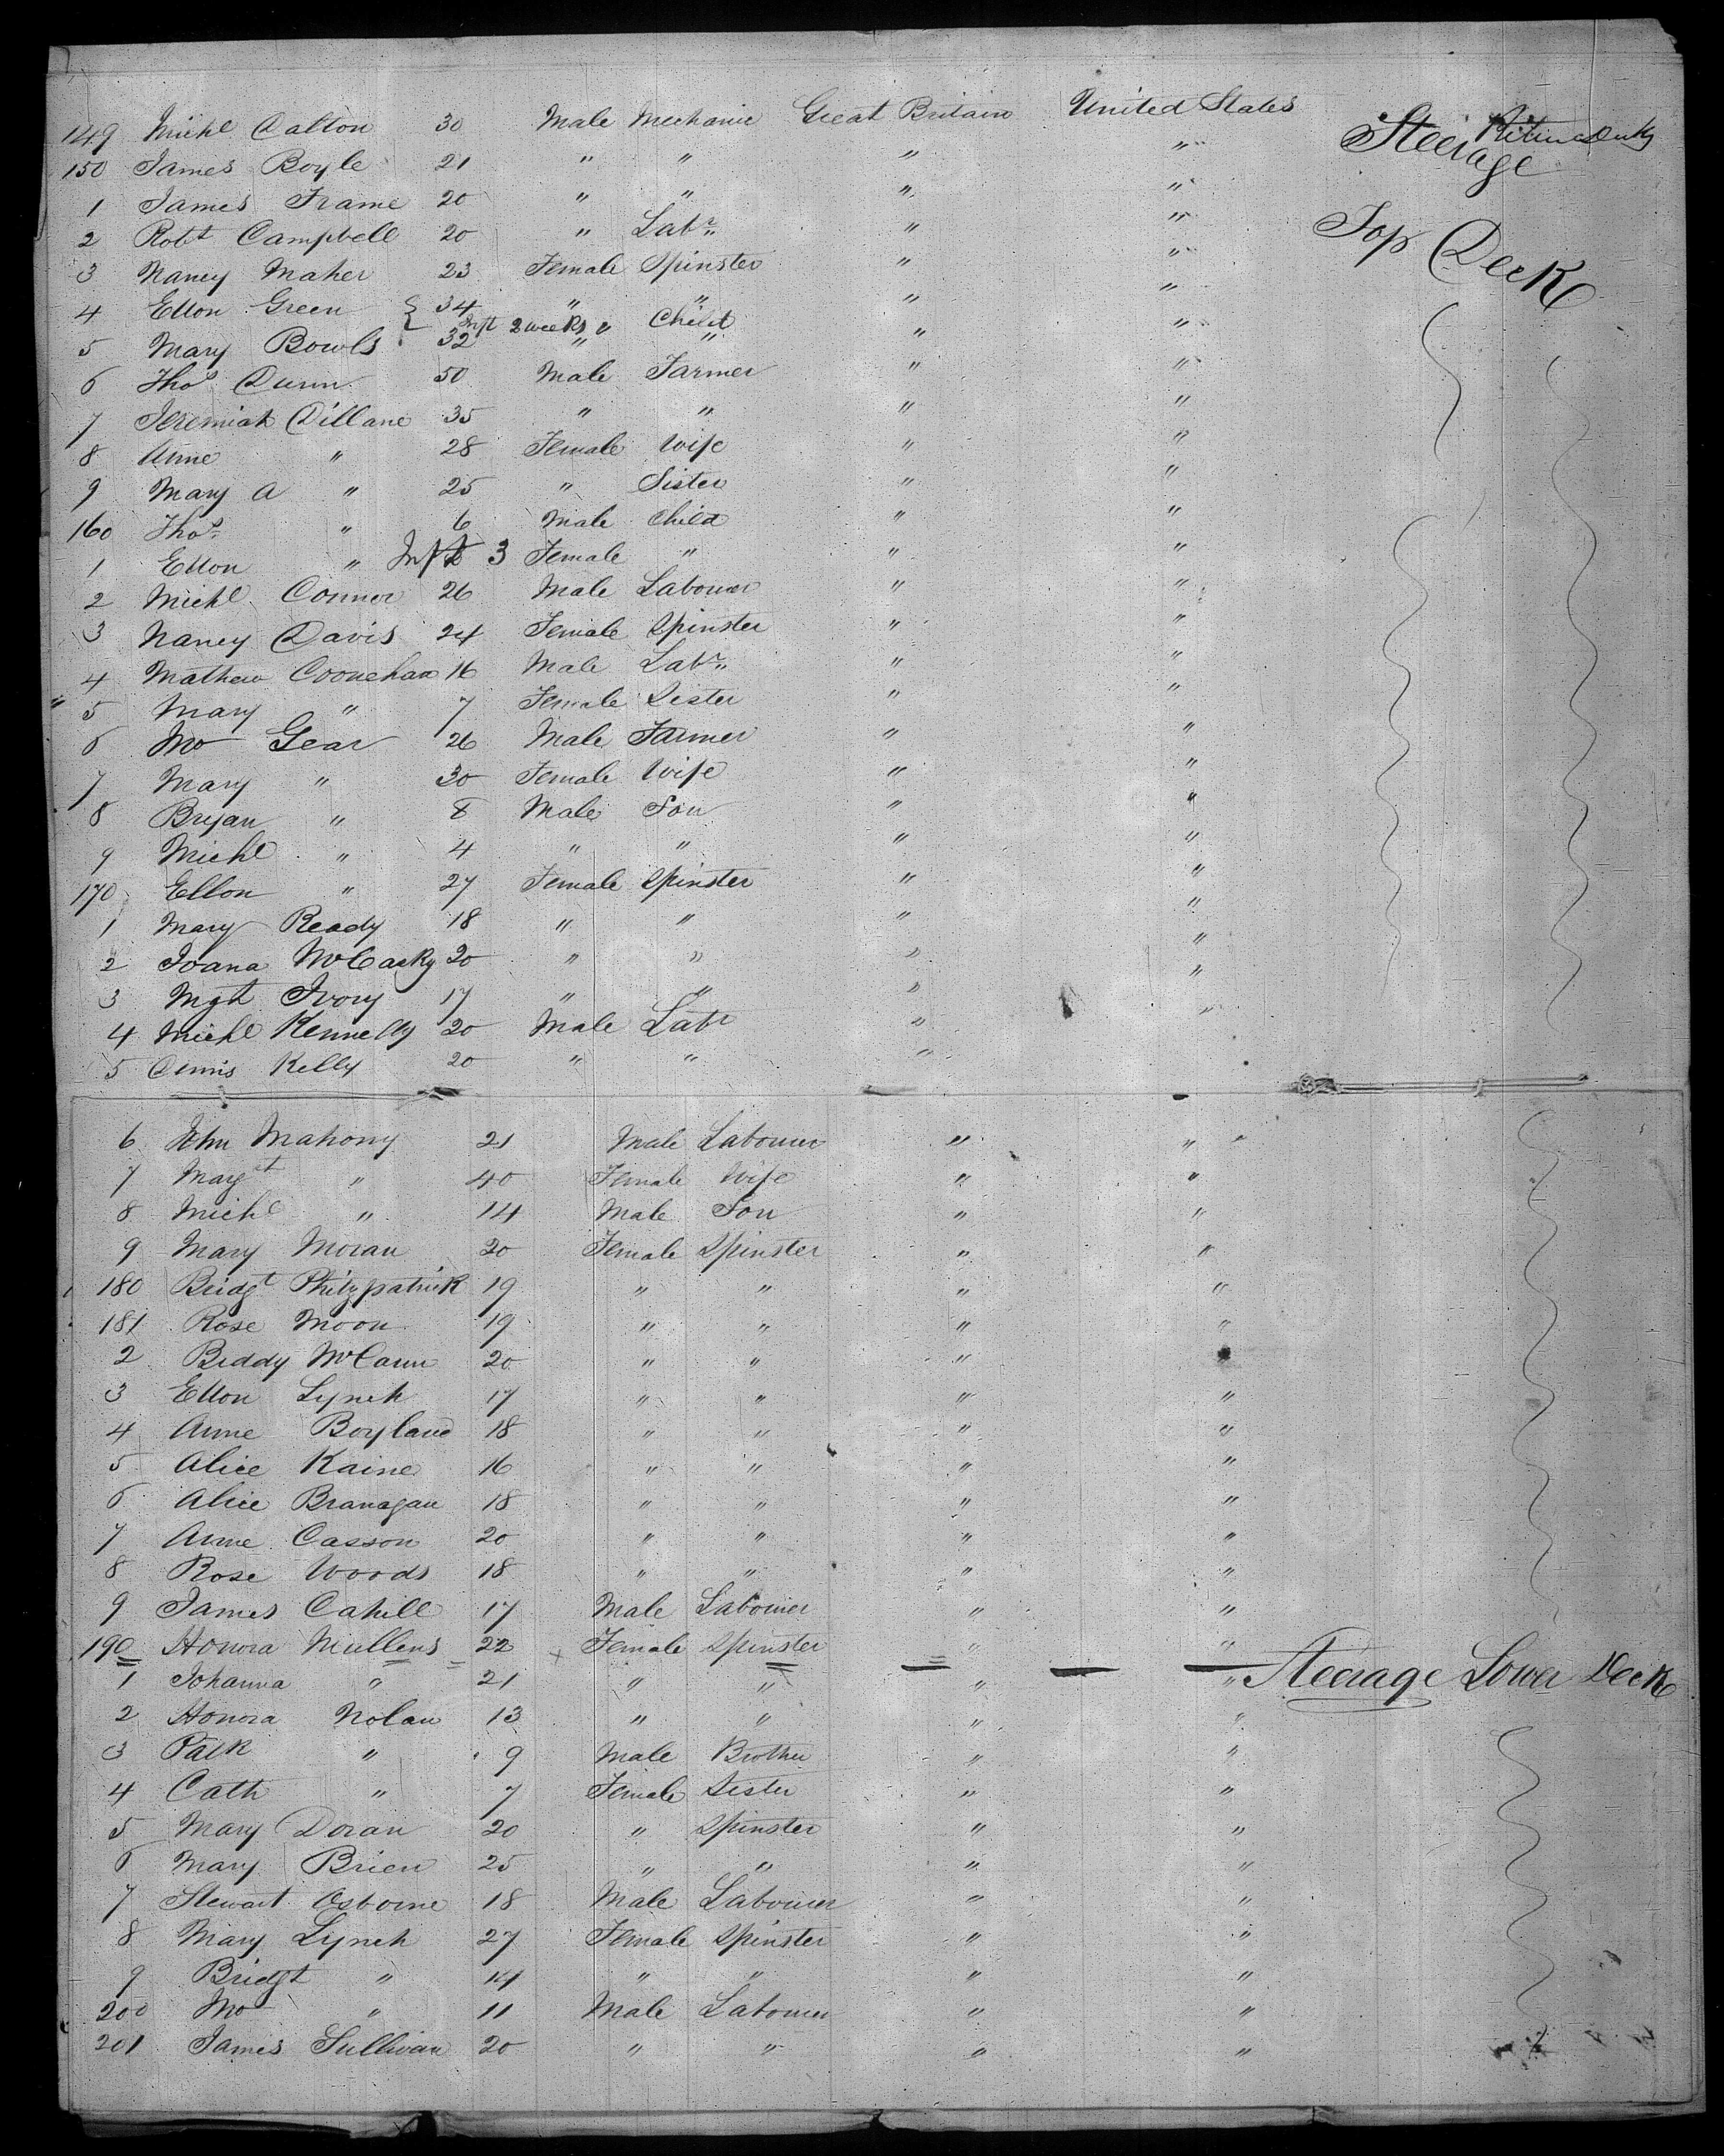 149 Michl Dalton 30 Male Mechanic Great Britain United States Steerage
150 James Boyle 21 " " " "
1 James Frame 20 " " " "
2 Robt Campbell 20 " Labr " " Top Deck
3 Nancy Maher 23 Female Spinster " "
4 Ellen Green 34 " " " "
Inft 2 weeks " Child
5 Mary Bowls 32 " " " "
6 Thos Dunn 50 Male Farmer " "
7 Jeremiah Dillane 35 " " " "
8 Anne " 28 Female Wife " "
9 Mary A " 25 " Sister " "
160 Thos " 6 Male Child " "
1 Ellen " Inft 3 Female " " "
2 Michl Connor 26 Male Labourer " "
3 Nancy Davis 24 Female Spinster " "
4 Mathew Coonehan 16 Male Labr " "
5 Mary " 7 Female Sister " "
6 Jno Gear 26 Male Farmer " "
7 Mary " 30 Female Wife " "
8 Bryan " 8 Male Son " "
9 Michl " 4 " " " "
170 Ellen " 27 Female Spinster " "
1 Mary Ready 18 " " " "
2 Joana McCasky 20 " " " "
3 Mgt Ivory 17 " " " "
4 Michl Kennelly 20 Male Labr " "
5 Denis Kelly 20 " " " "
6 John Mahony 21 Male Labourer " "
7 Margt " 40 Female Wife " "
8 Michl " 14 Male Son " "
9 Mary Moran 20 Female Spinster " "
180 Bridgt Phitzpatrick 19 " " " "
181 Rose Moon 19 " " " "
2 Biddy McCann 20 " " " "
3 Ellen Lynch 17 " " " "
4 Anne Boyland 18 " " " "
5 Alice Kaine 16 " " " "
6 Alice Branagan 18 " " " "
7 Anne Casson 20 " " " "
8 Rose Woods 18 " " " "
9 James Cahill 17 Male Labourer " "
190 Honora Mullens 22 Female Spinster " "
1 Johanna " 21 " " " " Steerage Lower Deck
2 Honora Nolan 13 " " " "
3 Patk " 9 Male Brother " "
4 Cath " 7 Female Sister " "
5 Mary Doran 20 " Spinster " "
6 Mary Brien 25 " " " "
7 Stewart Osborne 18 Male Labourer " "
8 Mary Lynch 27 Female Spinster " "
9 Bridgt " 14 " " " "
200 Jno " 11 Male Labourer " "
201 James Sullivan 20 " " " "